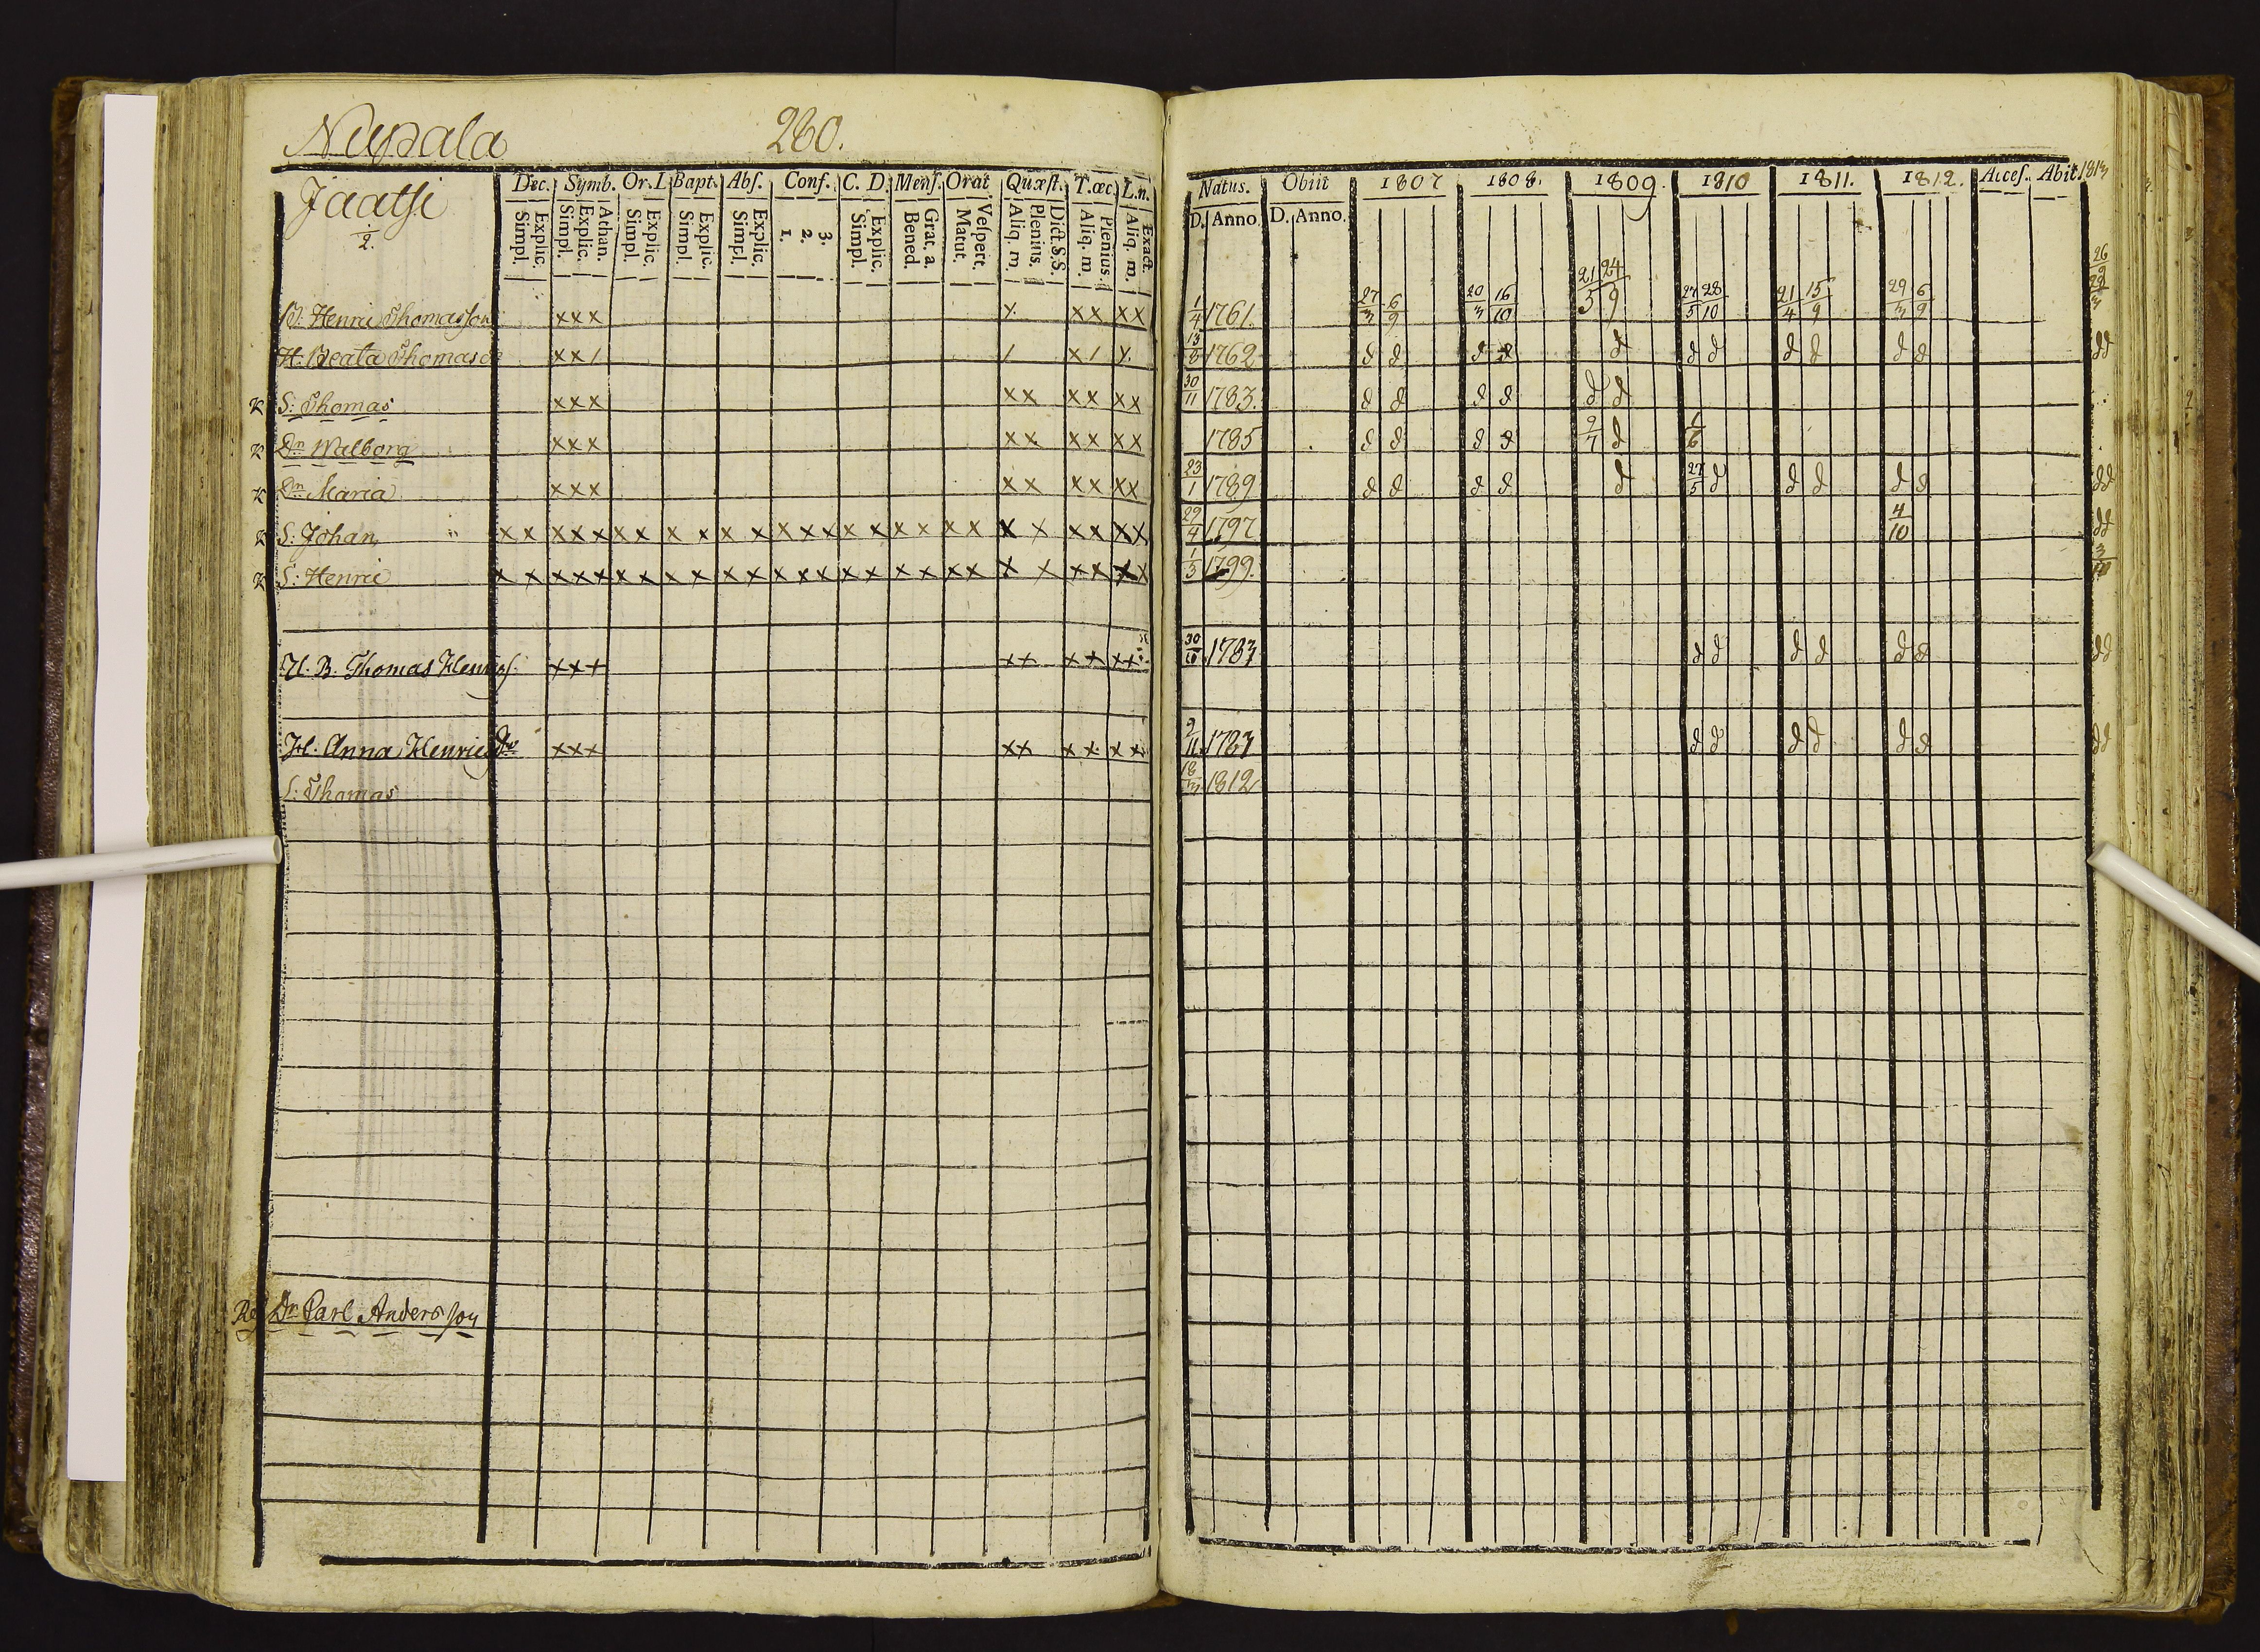 Nupala 260.
Jaatsi
1/2.
Dec. Symb. Or. I. Bapt. Abſ. Conf. C. D. Menſ. Orat Quæſt. T.œc. L.n.
Simpl. Explic. Simpl. Explic. Athan. Simpl. Explic. Simpl. Explic. Simpl. Explic. 1. 2. 3. Simpl. Explic. Bened. Grat. a. Matut. Veſpert. Aliq. m. Plenius. Dict. S.S. Aliq. m Plenius. Aliq. m. Exact.
Natus. Obiit 1807 1808. 1809. 1810 1811. 1812. Acceſ. Abiit 1813
D. Anno D. Anno.
Henric Thomasson xxx x xx xx 1/4 1761. 27/3 6/9 20/3 16/10 21/5 24/9 27/5 28/10 21/4 15/9 29/3 6/9
H. Beata Thomasdr xx/ / x/ x 1762 d d d d d d d d d d d dd
K S: Thomas xxx xx xx xx 30/11 1783. d d d d d d
K Dr Walborg xxx xx xx xx 1785 d d d d 9/7 d 1/6
K Dr Maria xxx xx xx xx 23/1 1789 d d d d d 27/5 d d d d d dd
K S: Johan xx xxx xx xx xx xxx xx xx xx xx xx xx 29/4 1797 4/10 dd
K S: Henric xx xxx xx xx xx xxx xx xx xx xx xx xx 1799. 3/10
U. B. Thomas Henrics. xxx xx xx xx 1783 d d d d d d dd
H. Anna Henricsdr xxx xx xx xx 9/11 1783 d d d d d d dd
S: Thomas 18/3 1812
Dr Carl Andersson